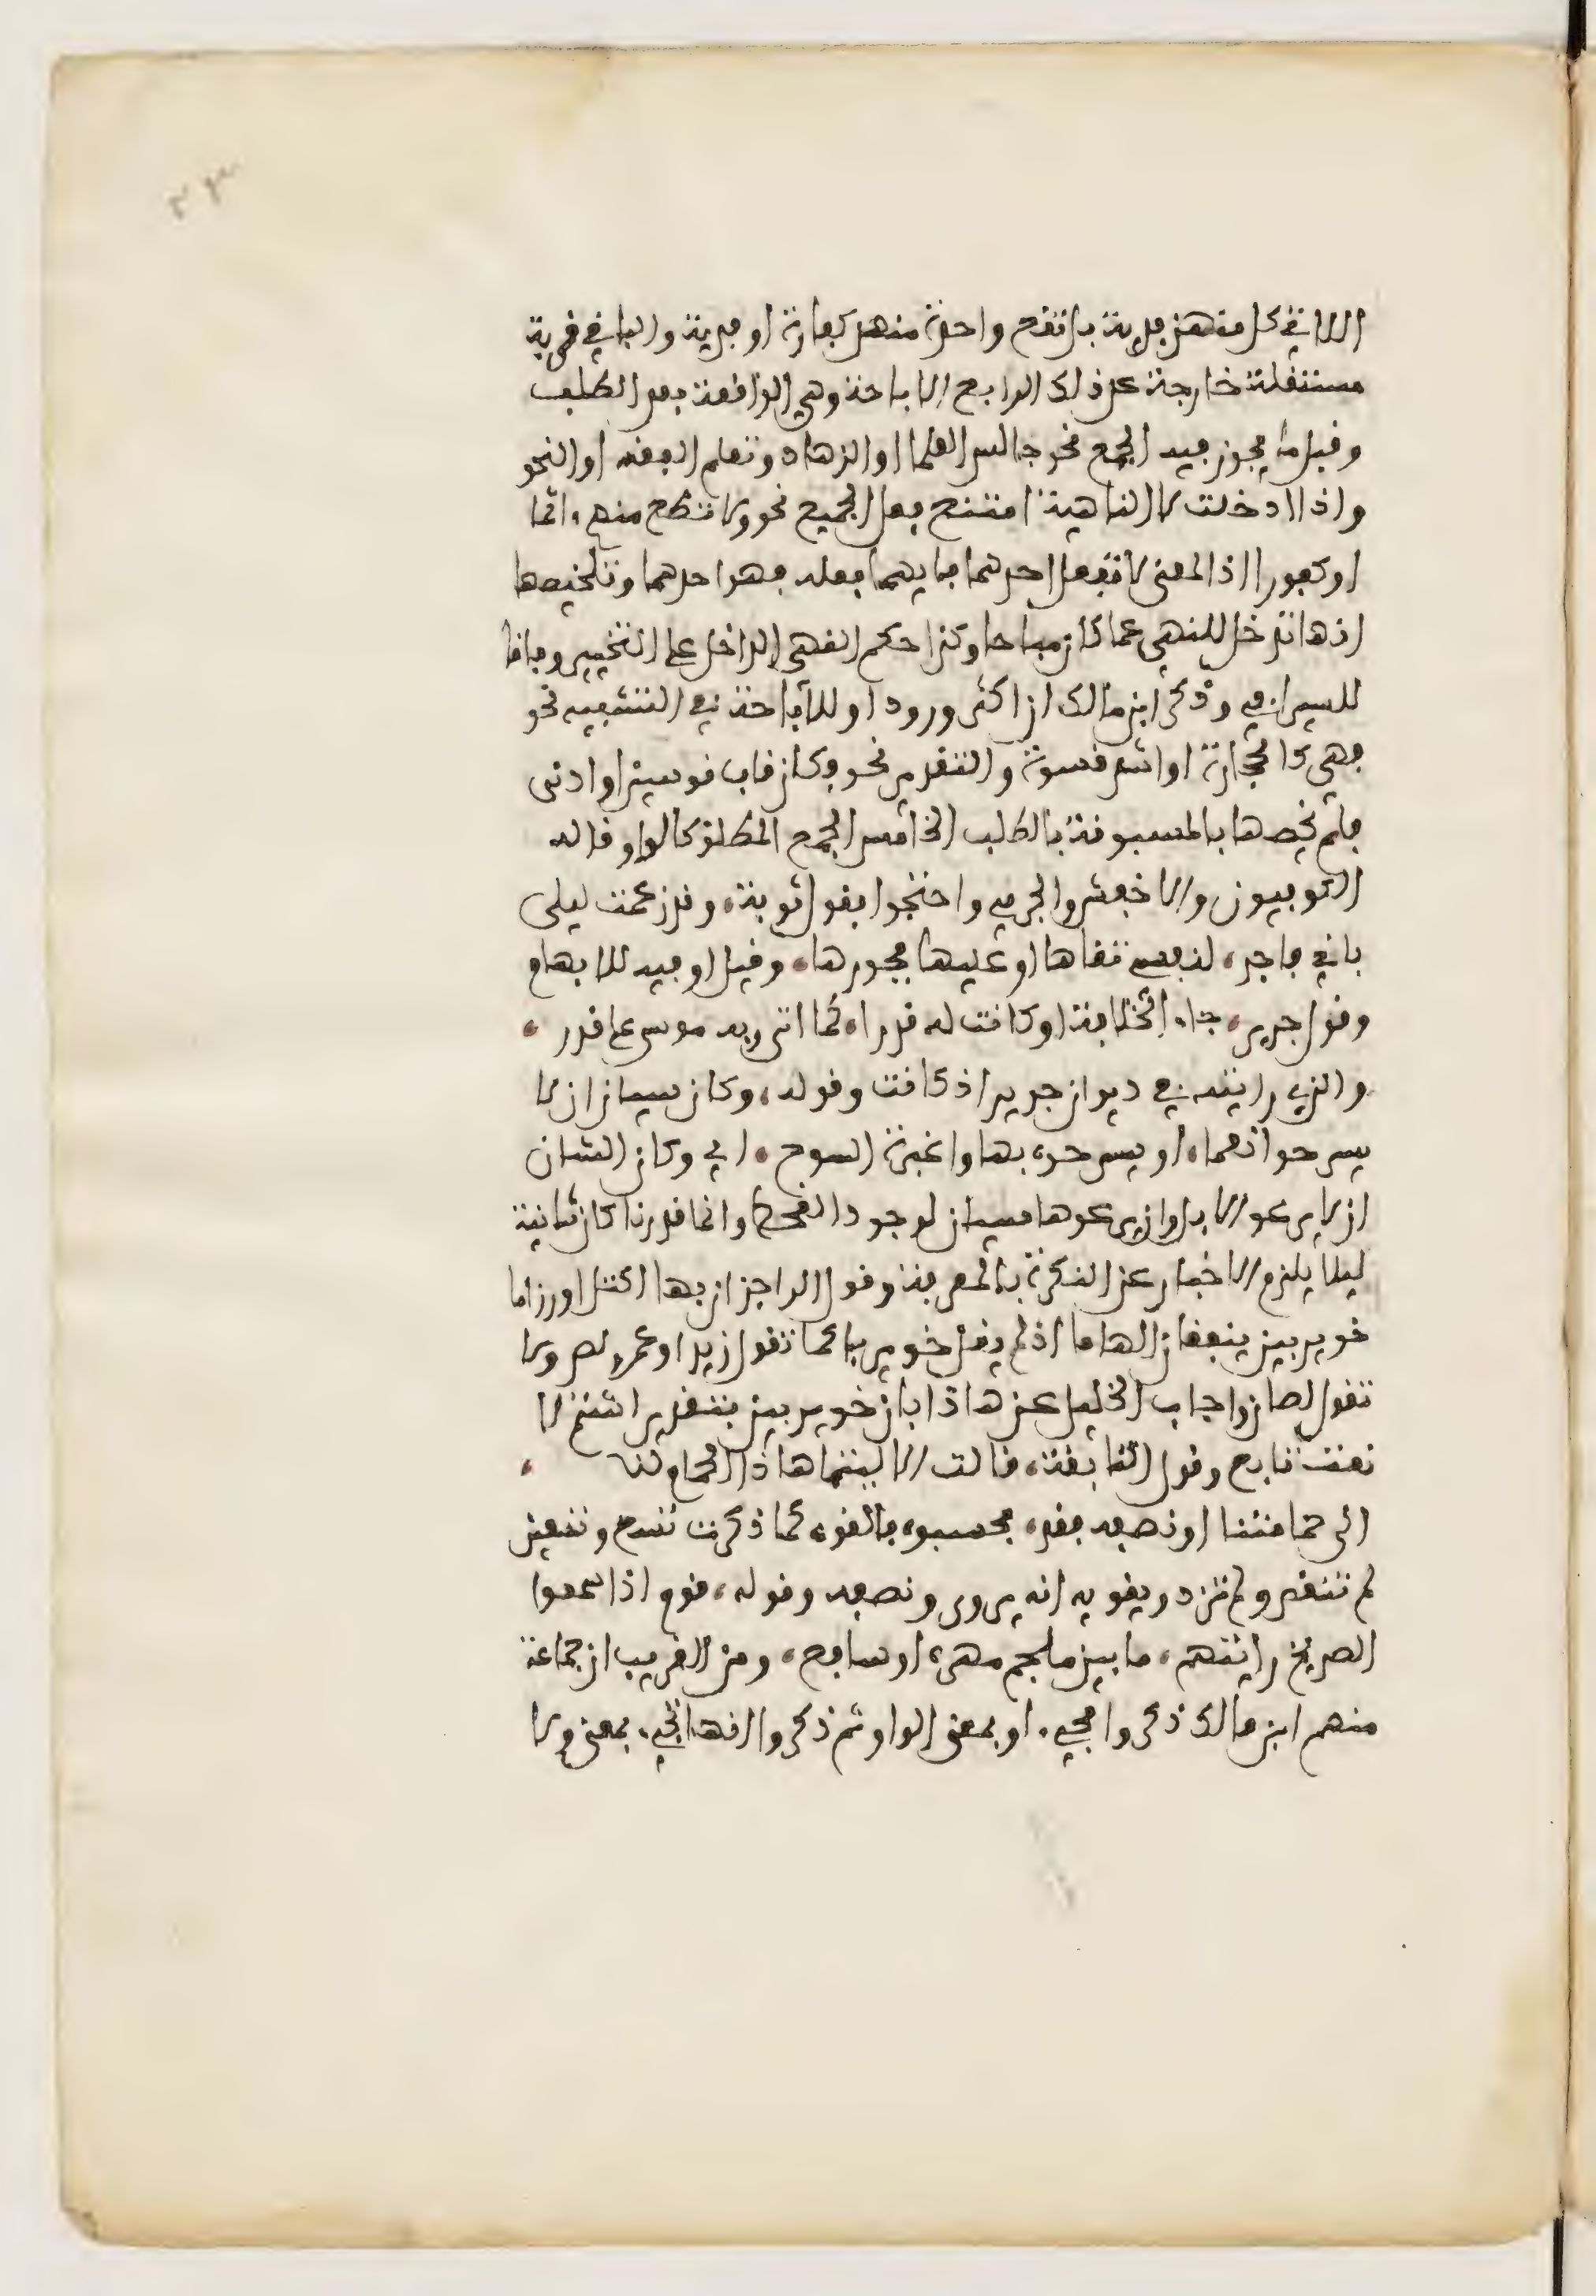 ٢٣
اللاتي كل منهن فدية بل تقع واحدة منهن كفارة او فدية والباقي قربة
مستقلة خارجة عن ذلك الرابع الاباحة وهي الواقعة بعد الطلب
وقبل ما يجوز فيه الجمع نحو جالس العلما او الزهاد وتعلم الفقه او النحو
واذا ادخلت لا الناهية امتنع فعل الجميع نحو ولا تطع منهم ءاثما
او كفورا اذ المعنى لا تفعل احدهما فايهما فعله فهو احدهما وتلخيصها
انها تدخل للنهي عما كان مباحا وكذا حكم النهي الداخل على التخيير وفاقا
للسيرافي وذكر ابن مالك ان اكثر ورود او للاباحة في التشبيه نحو
فهي كالحجارة او اشد قسوة والتقدير نحو وكان قاب قوسين او ادنى
فلم يخصها بالمسبوقة بالطلب الخامس الجمع المطلق كالواو قاله
الكوفيون والاخفش والجرمي واحتجوا بقول توبة، وقد زعمت ليلى
باني فاجر، لنفسي تقاها او عليها فجورها، وقيل او فيه للابهام
وقول جرير، جاء الخلافة او كانت له قدرا، كما اتى ربه موسى على قدر،
والذي رايته في ديوان جرير اذ كانت وقوله، وكان سيان ان لا
يسرحوا نعما، او يسرحوه بها واغبرة السوح، اي وكان الشان
ان لا يرعو الابل وان يرعوها سيان لوجود القحط وانما قدرنا كان شانية
ليلا يلزم الاخبار عن النكرة بالمعرفة وقول الراجز ان بها اكتل اورزاما
خويربين ينقفان الهاما اذ لم يقل خويربا كما تقول زيد او عمرو لص ولا
تقول لصان واجاب الخليل عن هاذا بان خويربين بتقدير اشتم لا
نعت تابع وقول النابغة، قالت الا ليتما هاذا الحمام لنا،
الى حمامتنا او نصفه فقد، فحسبوه فالفوه كما ذكرت تسع وتسعين
لم تنقص ولم تزد ويقويه انه يروى ونصفه وقوله، قوم اذا سمعوا
الصريخ رايتهم، ما بين ملجم مهره او سافع، ومن الغريب ان جماعة
منهم ابن مالك ذكروا مجيء او بمعنى الواو ثم ذكروا انها تجيء بمعنى ولا